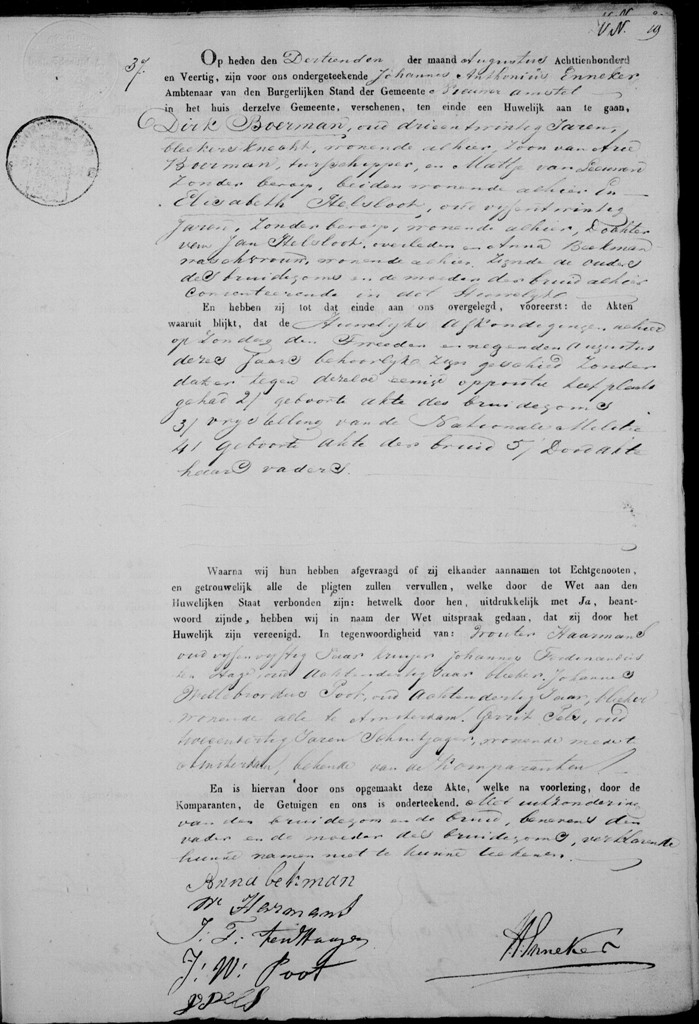 V. N. 19
37. Op heden den Dertienden der maand Augustus Achttienhonderd
en Veertig, zijn voor ons ondergeteekende Johannes Anthonius Enneker
Ambtenaar van den Burgerlijken Stand der Gemeente Nieuwer Amstel
in het huis derzelve Gemeente, verschenen, ten einde een Huwelijk aan te gaan,
Dirk Boerman, oud drieentwintig Jaren,
bleekersknecht, wonende alhier, Zoon van Arie
Boerman, turfschipper, en Matje van Leeuwen
Zonder beroep, beiden wonende alhier En
Elisabeth Helsloot, oud vyfentwintig
Jaren, Zonder beroep, wonende alhier, Dochter
van Jan Helsloot, overleden en Anna Beekman
waschvrouw, wonende alhier. Zijnde de ouders
des bruidegoms en de moeder der bruid alhier
Consenteerende in dit Huwelijk
En hebben zij tot dat einde aan ons overgelegd, vooreerst: de Akten
waaruit blijkt, dat de Huwelijks Afkondigingen alhier
op Zondag den Tweeden en negenden Augustus
dezes Jaars behoorlijk zijn geschied Zonder
dat er tegen dezelve eenige oppositie heeft plaats
gehad 2/ geboorte akte des bruidegoms
3/ vrystelling van de Nationale Militie
4/ geboorte akte der bruid 5/ Dood Akte
haars vaders.
Waarna wij hun hebben afgevraagd of zij elkander aannamen tot Echtgenooten,
en getrouwelijk alle de pligten zullen vervullen, welke door de Wet aan den
Huwelijken Staat verbonden zijn: hetwelk door hen, uitdrukkelijk met Ja, beant-
woord zijnde, hebben wij in naam der Wet uitspraak gedaan, dat zij door het
Huwelijk zijn vereenigd. In tegenwoordigheid van: Wouter Haarmans
oud vyfenvyftig Jaar Johannes
ten Hage, oud Achtendertig Jaar bleeker, Johannes
Willebrordus Poot, oud Achtendertig Jaar, bleeker
wonende alle te Amsterdam. Gerrit Pels, oud
Jaren wonende mede te
Amsterdam, bekende van de Komparanten
En is hiervan door ons opgemaakt deze Akte, welke na voorlezing, door de
Komparanten, de Getuigen en ons is onderteekend. Met uitzondering
van den bruidegom en de bruid, benevens den
vader en de moeder des bruidegoms, verklarende
hunne namen niet te kunnen teekenen.
Anna bekman
W Harmans
J: F: ten Haagen
J: W: Poot
G Pels
JAEnneker